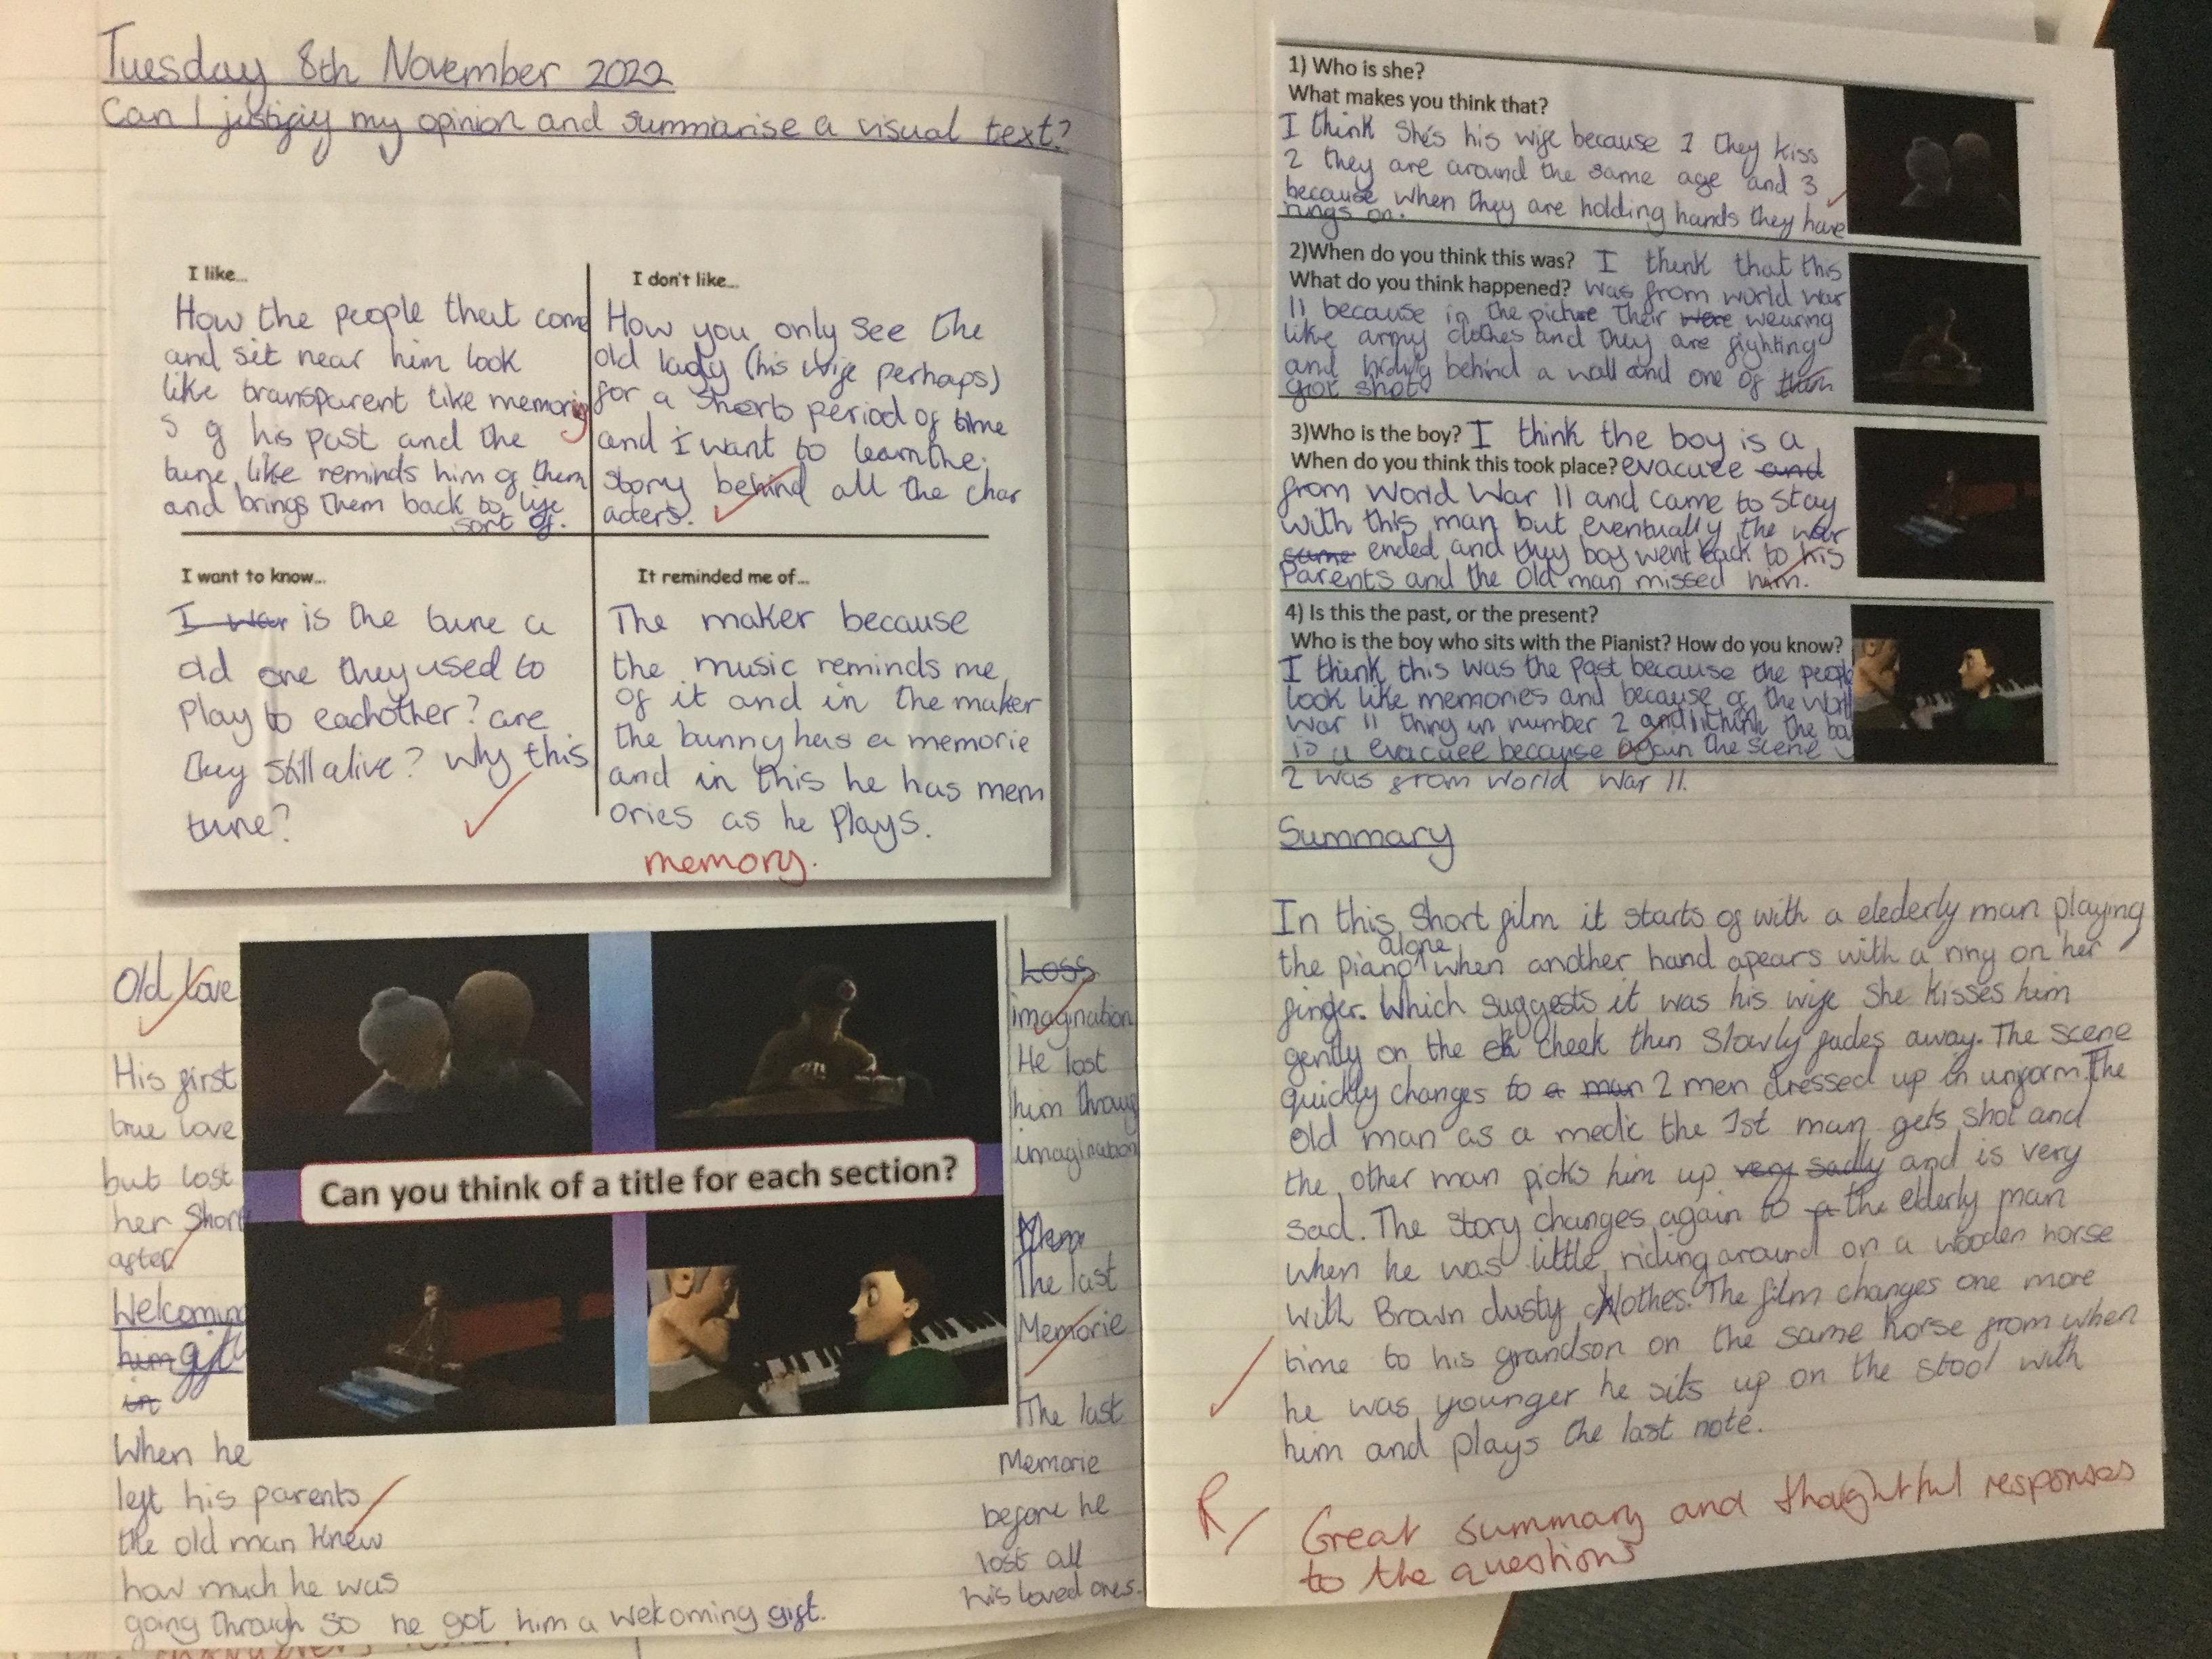 Tuesday 8th November 2022
Can I justifiy my opinion and summarise a visual text?
I like...
How the people that come
and sit near him look
like transparent like memorie
s of his past and the
tune like reminds him of them
and brings them back to life
sort of.
I don't like...
How you only see the
old lady (his wife perhaps)
for a short period of time
and I want to learn the
story behind all the char
acters.
I want to know...
I war is the tune a
old one they used to
play to eachother? are
they still alive? Why this
tune?
It reminded me of...
The maker because
the music reminds me
of it and in the maker
the bunny has a memorie
and in this he has mem
ories as he plays.
memory.
Old love
His first
true love
but lost
her short
after
Welcoming
him gift
in
When he
left his parents
the old man knew
how much he was
going through so he got him a welcoming gift.
Can you think of a title for each section?
Loss
imagination
He lost
him throug
imagination
Mem
The last
Memorie
The last
Memorie
before he
lost all
his loved ones.
1) Who is she?
What makes you think that?
I think She's his wife because 1 they kiss
2 they are around the same age and 3
because when they are holding hands they have
rings on.
2)When do you think this was? I think that this
What do you think happened? was from world war
11 because in the picture their were wearing
like army clothes and they are fighting
and hiding behind a wall and one of them
got shot.
3)Who is the boy? I think the boy is a
When do you think this took place? evacuee and
from World War 11 and came to stay
with this man but eventually the war
came ended and they boy went back to his
Parents and the Old man missed him.
4) Is this the past, or the present?
Who is the boy who sits with the Pianist? How do you know?
I think this was the Past because the people
look like memories and because of the World
War 11 thing in number 2 and I think the boy
is a evacuee because again the scene
2 was from World War 11.
Summary
In this Short film it starts of with a elederly man playing
the piano alone when another hand apears with a ring on her
finger. Which suggests it was his wife She kisses him
gently on the ch cheek then Slowly fades away. The scene
quickly changes to a man 2 men dressed up in uniform. The
old man as a medic the 1st man gets shot and
the other man picks him up very sadly and is very
sad. The story changes again to a the elderly man
when he was little riding around on a wooden horse
with Brown dusty clothes. The film changes one more
time to his grandson on the same horse from when
he was younger he sits up on the stool with
him and plays the last note.
R/ Great summary and thoughtful responses
to the questions